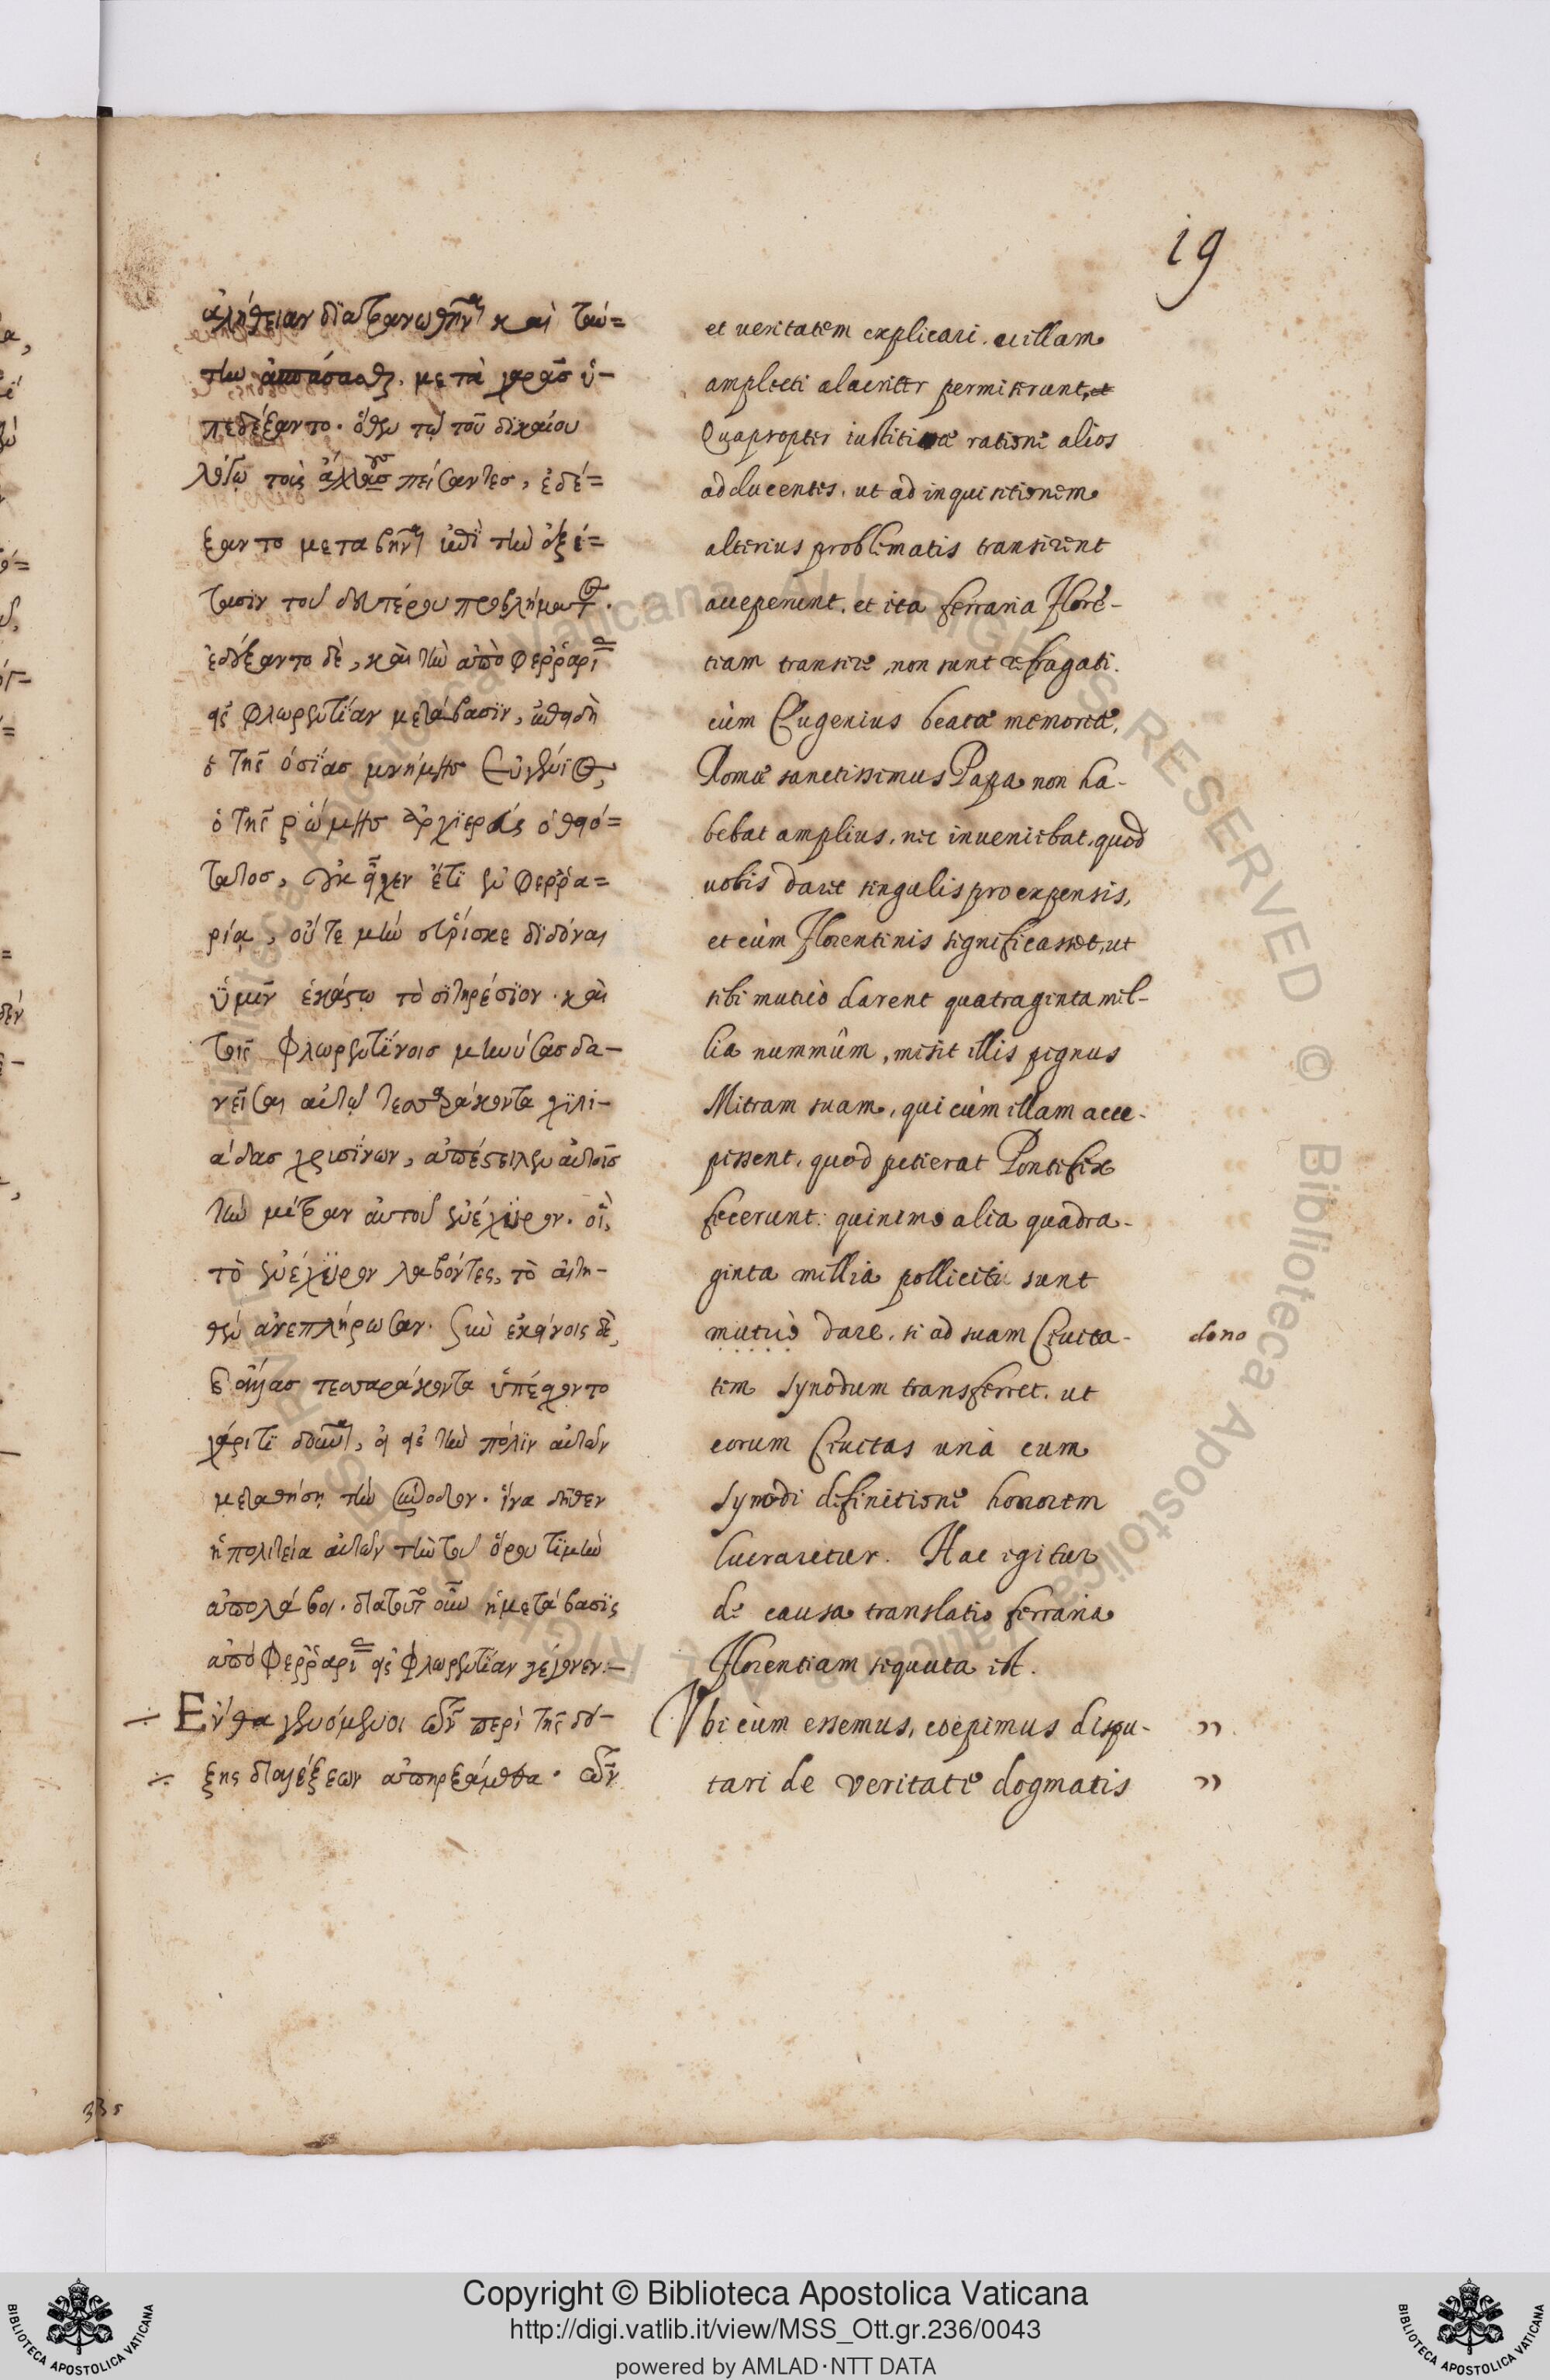 19
ἀλήθειαν διατρανωθῆναι καὶ ταύ=
την ἀσπάσασθαι. μετὰ χαρᾶσ ὑ-
πεδέξαντο. ὅθεν τῷ τοῦ δικαίου
λόγῳ τοὺς ἄλλουσ πείσαντεσ, ἐδέ=
ξαντο μεταβῆναι ἐπὶ τὴν ἐξέ=
τασιν τοῦ δευτέρου προβλήματος.
ἐδέξαντο δὲ, καὶ τὴν ἀπὸ φερραρίας
εἰς φλωρεντίαν μετάβασιν, ἐπειδὴ
ὁ τῆς ὁσίασ μνήμησ Εὐγένιος,
ὁ τῆς ῥώμησ ἀρχιερεὺς ὁ θειό=
τατοσ, οὐκ εἶχεν ἔτι ἐν φερρα=
ρίᾳ, οὔτε μὴν εὕρισκε διδόναι
ὑμῖν ἑκάστῳ τὸ σιτηρέσιον. καὶ
τοῖς Φλωρεντίνοισ μηνύσασ δα-
νεῖσαι αὐτῷ τεσσαράκοντα χιλι-
άδασ χρυσίνων, ἀπέστειλεν αὐτοῖσ
τὴν μίτραν αὐτοῦ ἐνέχυρον. οἳ,
τὸ ἐνέχυρον λαβόντες, τὸ αἰτη-
θὲν ἀνεπλήρωσαν. σὺν ἐκείνοις δὲ,
ἑτέρασ τεσσαράκοντα ὑπέσχοντο
χάριτι δοῦναι, εἰ εἰς τὴν πόλιν αὐτῶν
μεταθήσῃ τὴν σύνοδον. ἵνα δῆθεν
ἡ πολιτεία αὐτῶν τὴν τοῦ ὅρου τιμὴν
ἀπολάβοι. διατοῦτο οὖν ἡ μετάβασις
ἀπὸ Φερραρίας εἰς φλωρεντίαν γέγονεν:-
Ἔνθα γενόμενοι τῶν περὶ τῆς δό-
ξης διαλέξεων ἀπηρξάμεθα. τῶν
et veritatem explicari. et illam
amplecti alacriter permiserunt, et
Quapropter iustitiae ratione alios
adducentes, ut ad inquisitionem
alterius problematis transirent
acceperunt. et ita ferraria Florē-
tiam transire, non sunt refragati.
cùm Eugenius beatae memoriae,
Romae sanctissimus Papa non ha-
bebat amplius, nec inveniebat, quod
vobis daret singulis pro expensis,
et cùm Florentinis significasset, ut
sibi mutuò darent quatraginta mil-
lia nummûm, misit illis pignus
Mitram suam, qui cùm illam acce-
pissent, quod petierat Pontifex
fecerunt: quinimo alia quadra-
ginta millia polliciti sunt
mutuò dare, si ad suam Civita- dono
tem Synodum transferret. ut
eorum Civitas unà cum
synodi definitione honorem
lucraretur. Hac igitur
de causa translatio ferraria
Florentiam sequuta est.
Ubi cùm essemus, coepimus dispu- ”
tari de veritate dogmatis ”
335
Copyright © Biblioteca Apostolica Vaticana
http://digi.vatlib.it/view/MSS_Ott.gr.236/0043
powered by AMLAD·NTT DATA
BIBLIOTECA APOSTOLICA VATICANA
BIBLIOTECA APOSTOLICA VATICANA